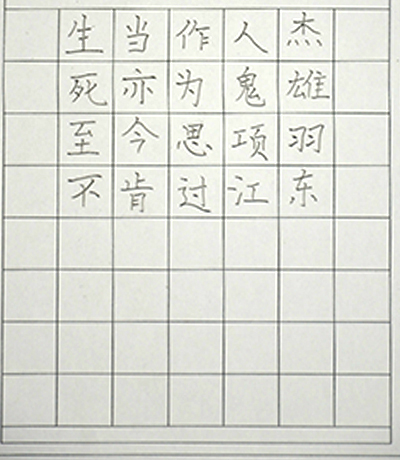 生当作人杰
死亦为鬼雄
至今思项羽
不肯过江东